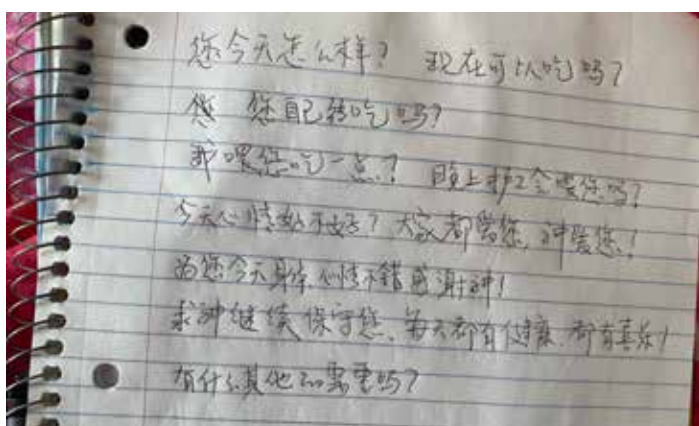 您今天怎么样？ 现在可以吃吗？
您 您自己能吃吗？
我喂您吃一点？ 晚上护工会喂您吗？
今天心情好不好？大家都爱您，神爱您！
为您今天身体、心情不错感谢神！
求神继续保守您、每天都有健康、都有喜乐！
有什么其他的需要吗？